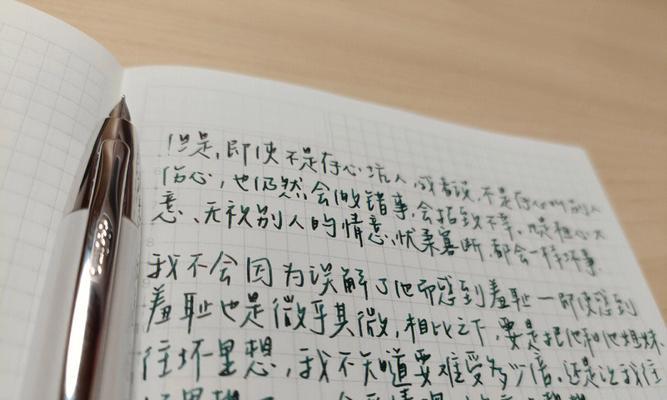 但是,即使不是存心坑人,或者说,不是存心叫别人
伤心,也仍然会做错事,会招致不幸。凡是粗心大
意、无视别人的情意、优柔寡断,都会一样坏事。
我不会因为误解了他而感到羞耻—即使感到
羞耻也是微乎其微,相比之下,要是把他和他姐妹
往坏里想,我不知道要难受多少倍。还是让我往